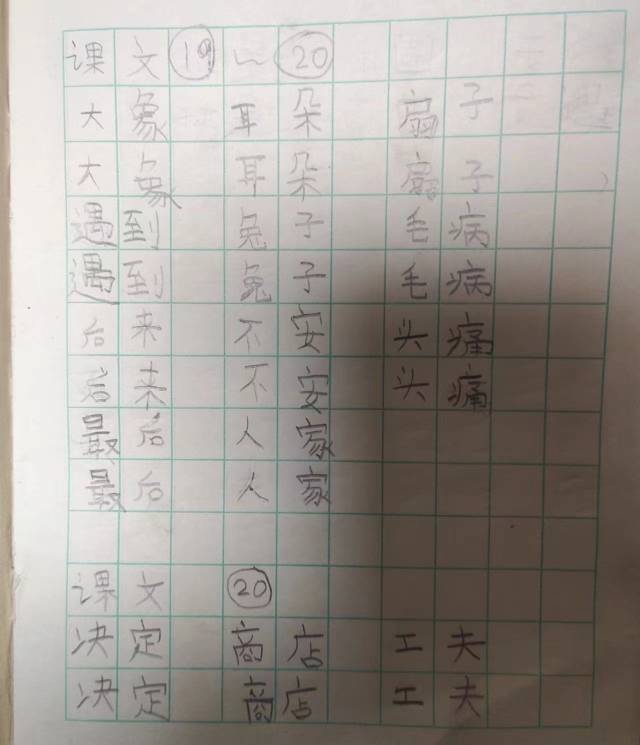 课文 19 ~ 20
大象 耳朵 扇子
大象 耳朵 扇子
遇到 兔子 毛病
遇到 兔子 毛病
后来 不安 头痛
后来 不安 头痛
最后 人家
最后 人家
课文 20
决定 商店 工夫
决定 商店 工夫